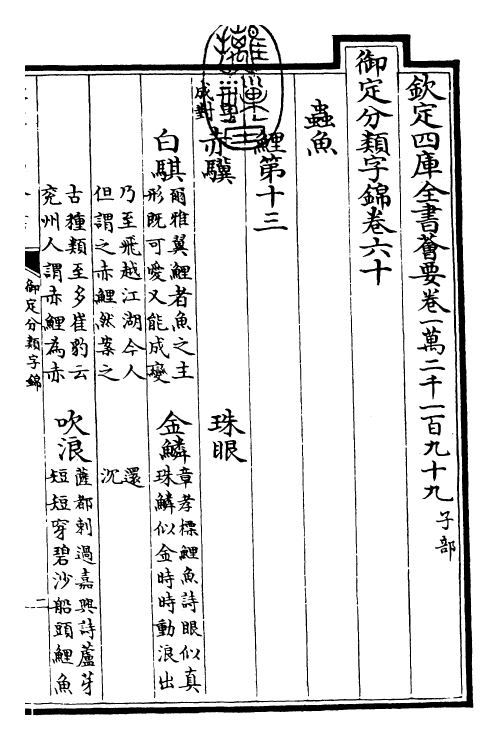 欽定四庫全書薈要卷一萬二千一百九十九 子部
御定分類字錦卷六十
蟲魚
鯉第十三
成對
赤驥 珠眼
白騏 爾雅翼鯉者魚之主
形既可愛又能成變
金鱗 章孝標鯉魚詩眼似真
珠鱗似金時時動浪出
乃至飛越江湖今人
但謂之赤鯉然案之
還
沉
古種類至多崔豹云
兖州人謂赤鯉為赤
吹浪 薩都剌過嘉興詩蘆芽
短短穿碧沙船頭鯉魚
御定分類字錦